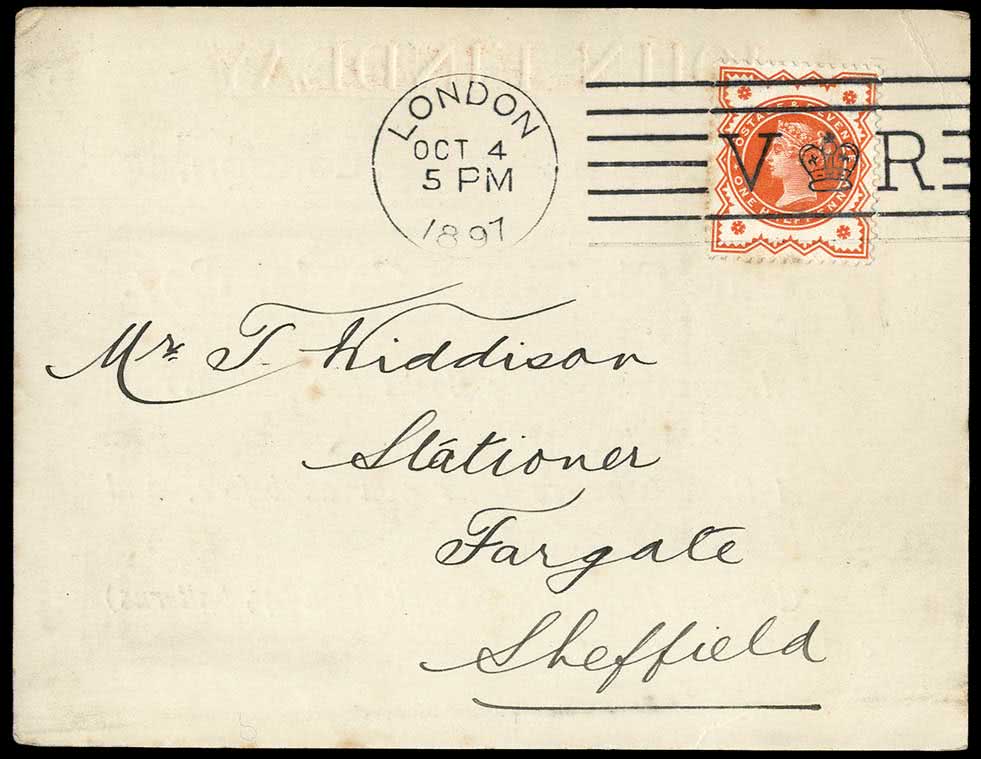 LONDON
OCT 4
5 PM
1897
V R
POSTAGE & REVENUE
ONE HALFPENNY
Mr. T. Widdison
Stationer
Fargate
Sheffield